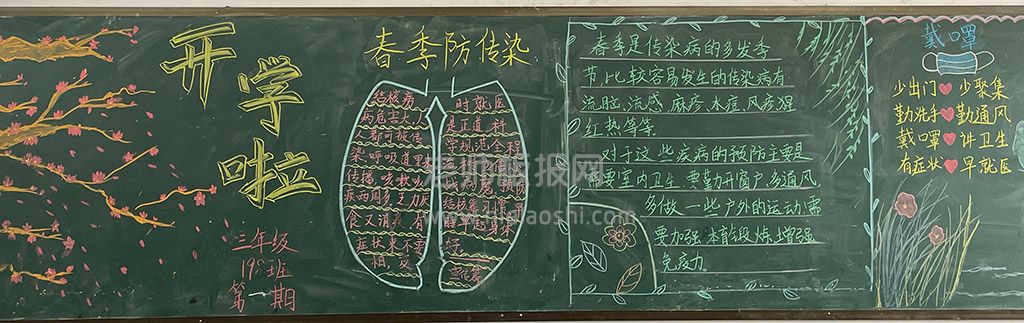 开学啦
三年级
198班
第一期
春季防传染
结核病
病危害大人
人都可被传
染呼吸道里
传播
咳嗽
疾两周多乏力厌
食又消瘦有
症状来不要
慌
时就医
是正道科
学规范全程
好
春季是传染病的多发季
节,比较容易发生的传染病有
流脑、流感、麻疹、水痘、风疹、猩
红热等等
对于这些疾病的预防主要是
需要室内卫生,要勤开窗户,多通风
多做一些户外的运动,需
要加强体育锻炼,增强
免疫力
老师板报网
www.hilaoshi.com
戴口罩
少出门 少聚集
勤洗手 勤通风
戴口罩 讲卫生
有症状 早就医